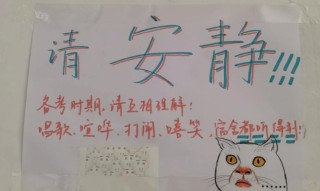 请安静!!!
备考时期,请互相理解!
唱歌、喧哗、打闹、嘻笑,宿舍都听得到!